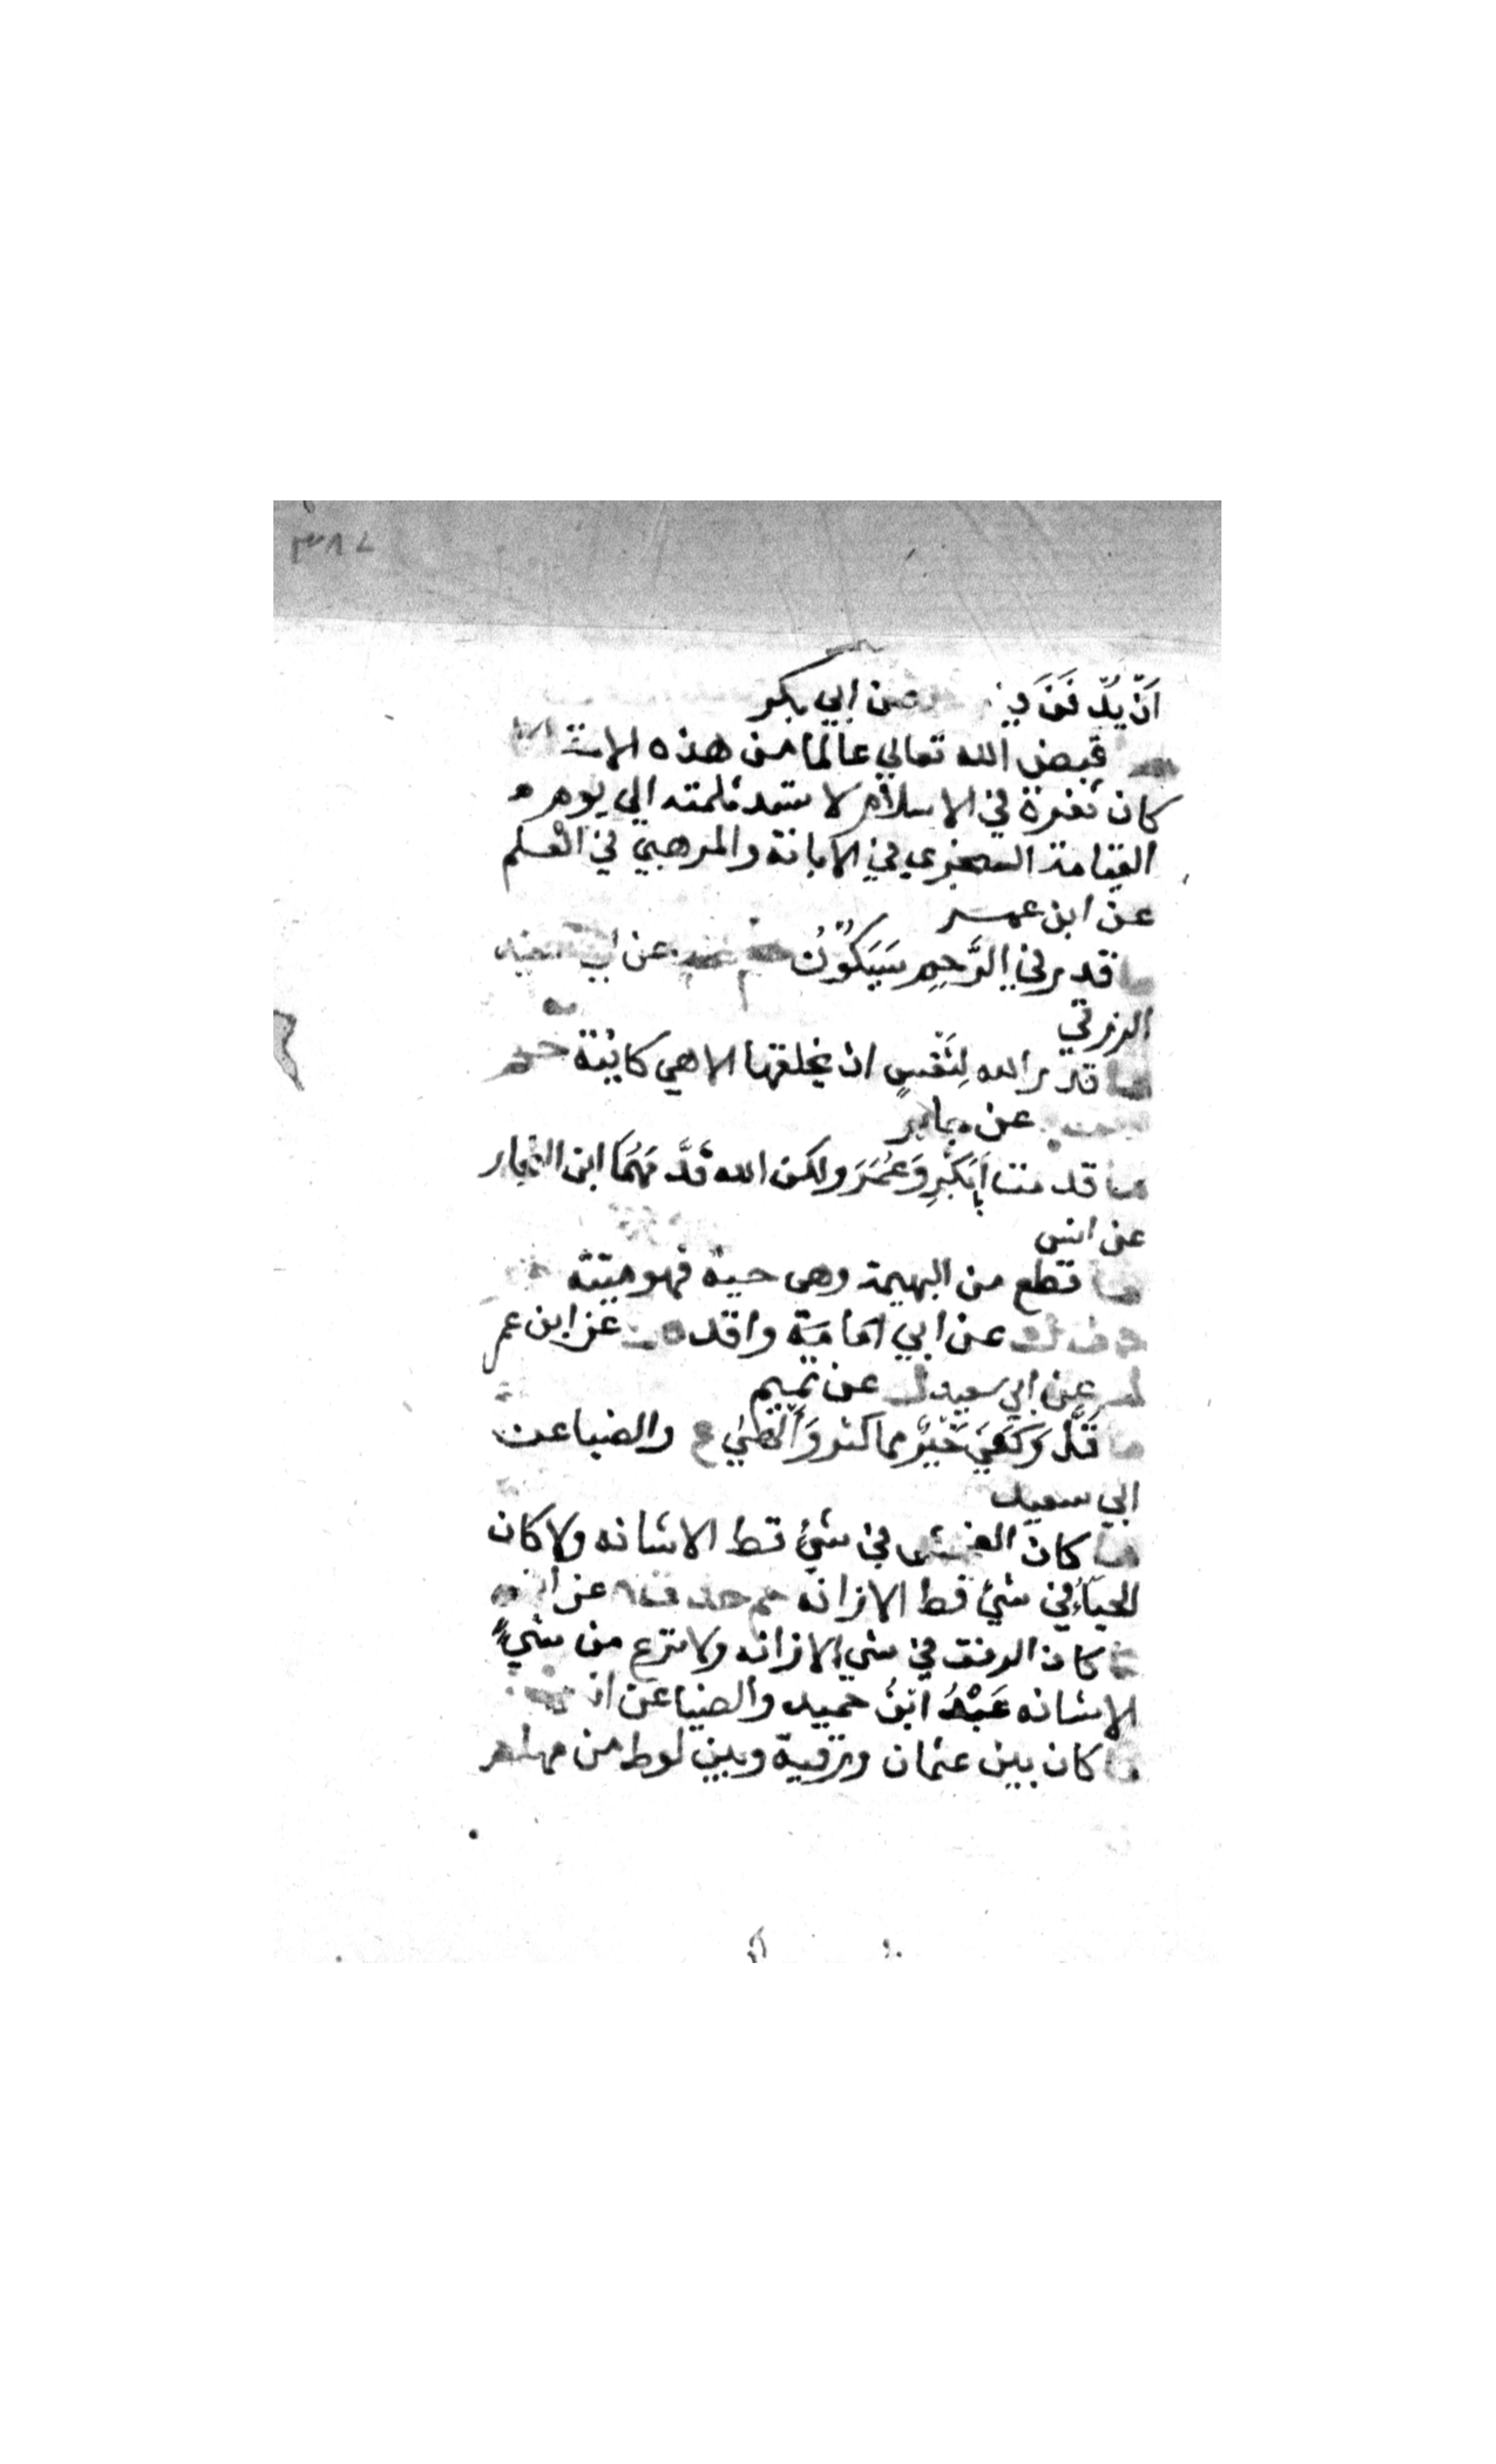 ٣٨٧
اَنْ يُدْفَنَ فِيهِ عن ابي بكر
قبض الله تعالي عالما من هذه الامة
كان ثغرة في الاسلام لا تسد ثلمته الي يوم
القيامة السجزي في الابانة والمرهبي في العلم
عن ابن عمر
ما قدر في الرَّحِمِ سَيَكُوْنُ حم عن ابي سعيد
الزرقي
ما قدر الله لِنَفْسٍ ان يخلقها الا هي كائنة حم
عن جابر
ما قدمت اَبَابَكْرٍ وَعُمَرَ ولكن الله قَدَّمَهُمَا ابن النجار
عن انس
ما قطع من البهيمة وهى حية فهو ميتة
عن ابي امامة واقد عن ابن عمر
عن ابي سعيد عن تميم
ما قَلَّ وَكَفَيَ خَيْرٌ مما كثر وَاَلْهَي ع والضيا عن
ابي سعيد
ما كان الفحش في شئ قط الا شانه ولا كان
الحياءُ في شئ قط الا زانه حم عن
ما كان الرفق في شي الا زانه ولا نزع من شيءٍ
الا شانه عَبْدُ ابنُ حميد والضيا عن
ما كان بين عثمان ورقية وبين لوط من مهاجر